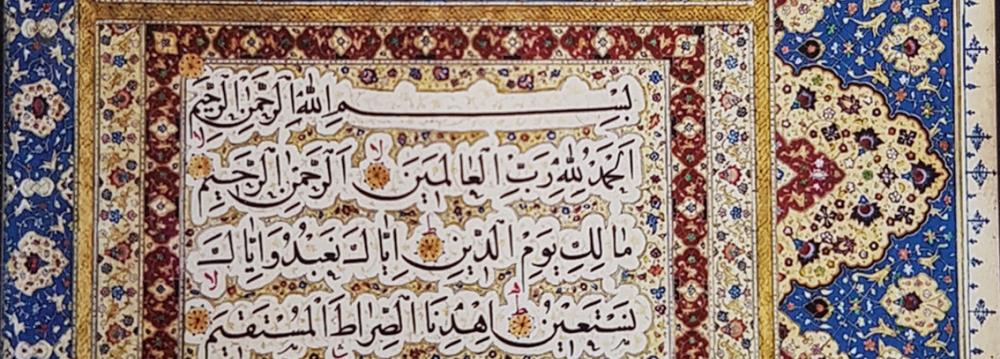 بِسْمِ اللهِ الرَّحْمٰنِ الرَّحِيْمِ
اَلْحَمْدُ لِلّٰهِ رَبِّ الْعَالَمِيْنَ لا اَلرَّحْمٰنِ الرَّحِيْمِ لا
مَالِكِ يَوْمِ الدِّيْنِ ط اِيَّاكَ نَعْبُدُ وَاِيَّاكَ
نَسْتَعِيْنُ ط اِهْدِنَا الصِّرَاطَ الْمُسْتَقِيْمَ لا